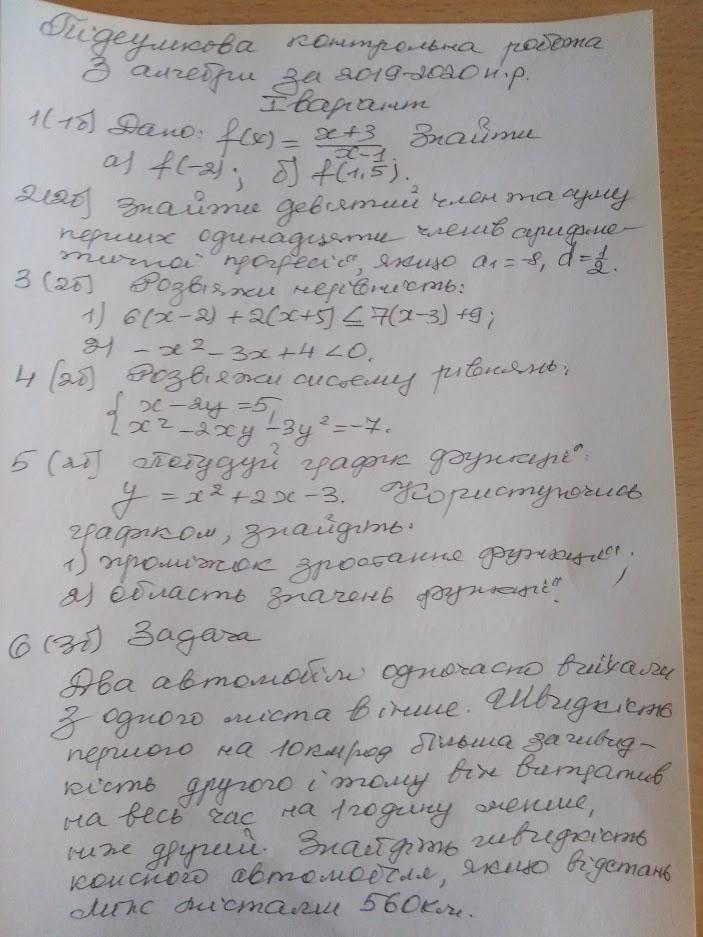 Підсумкова контрольна робота
З алгебри за 2019-2020 н.р.
I варіант
1(1б) Дано: f(x) = \frac{x+3}{x-1} Знайти
а) f(-2); б) f(1,5).
2(2б) Знайти дев'ятий член та суму
перших одинадцяти членів арифме-
тичної прогресії, якщо a₁ = -8, d = \frac{1}{2}.
3 (2б) Розв'яжи нерівність:
1) 6(x-2) + 2(x+5) ≤ 7(x-3) + 9;
2) -x² - 3x + 4 < 0.
4 (2б) Розв'яжи систему рівнянь:
{ x - 2y = 5,
x² - 2xy - 3y² = -7.
5 (2б) Побудуй графік функції:
y = x² + 2x - 3. Користуючись
графіком, знайдіть:
1) проміжок зростання функції;
2) область значень функції.
6 (3б) Задача
Два автомобілі одночасно виїхали
З одного міста в інше. Швидкість
першого на 10км/год більша за швид-
кість другого і тому він витратив
на весь час на 1 годину менше,
ніж другий. Знайдіть швидкість
кожного автомобіля, якщо відстань
між містами 560км.